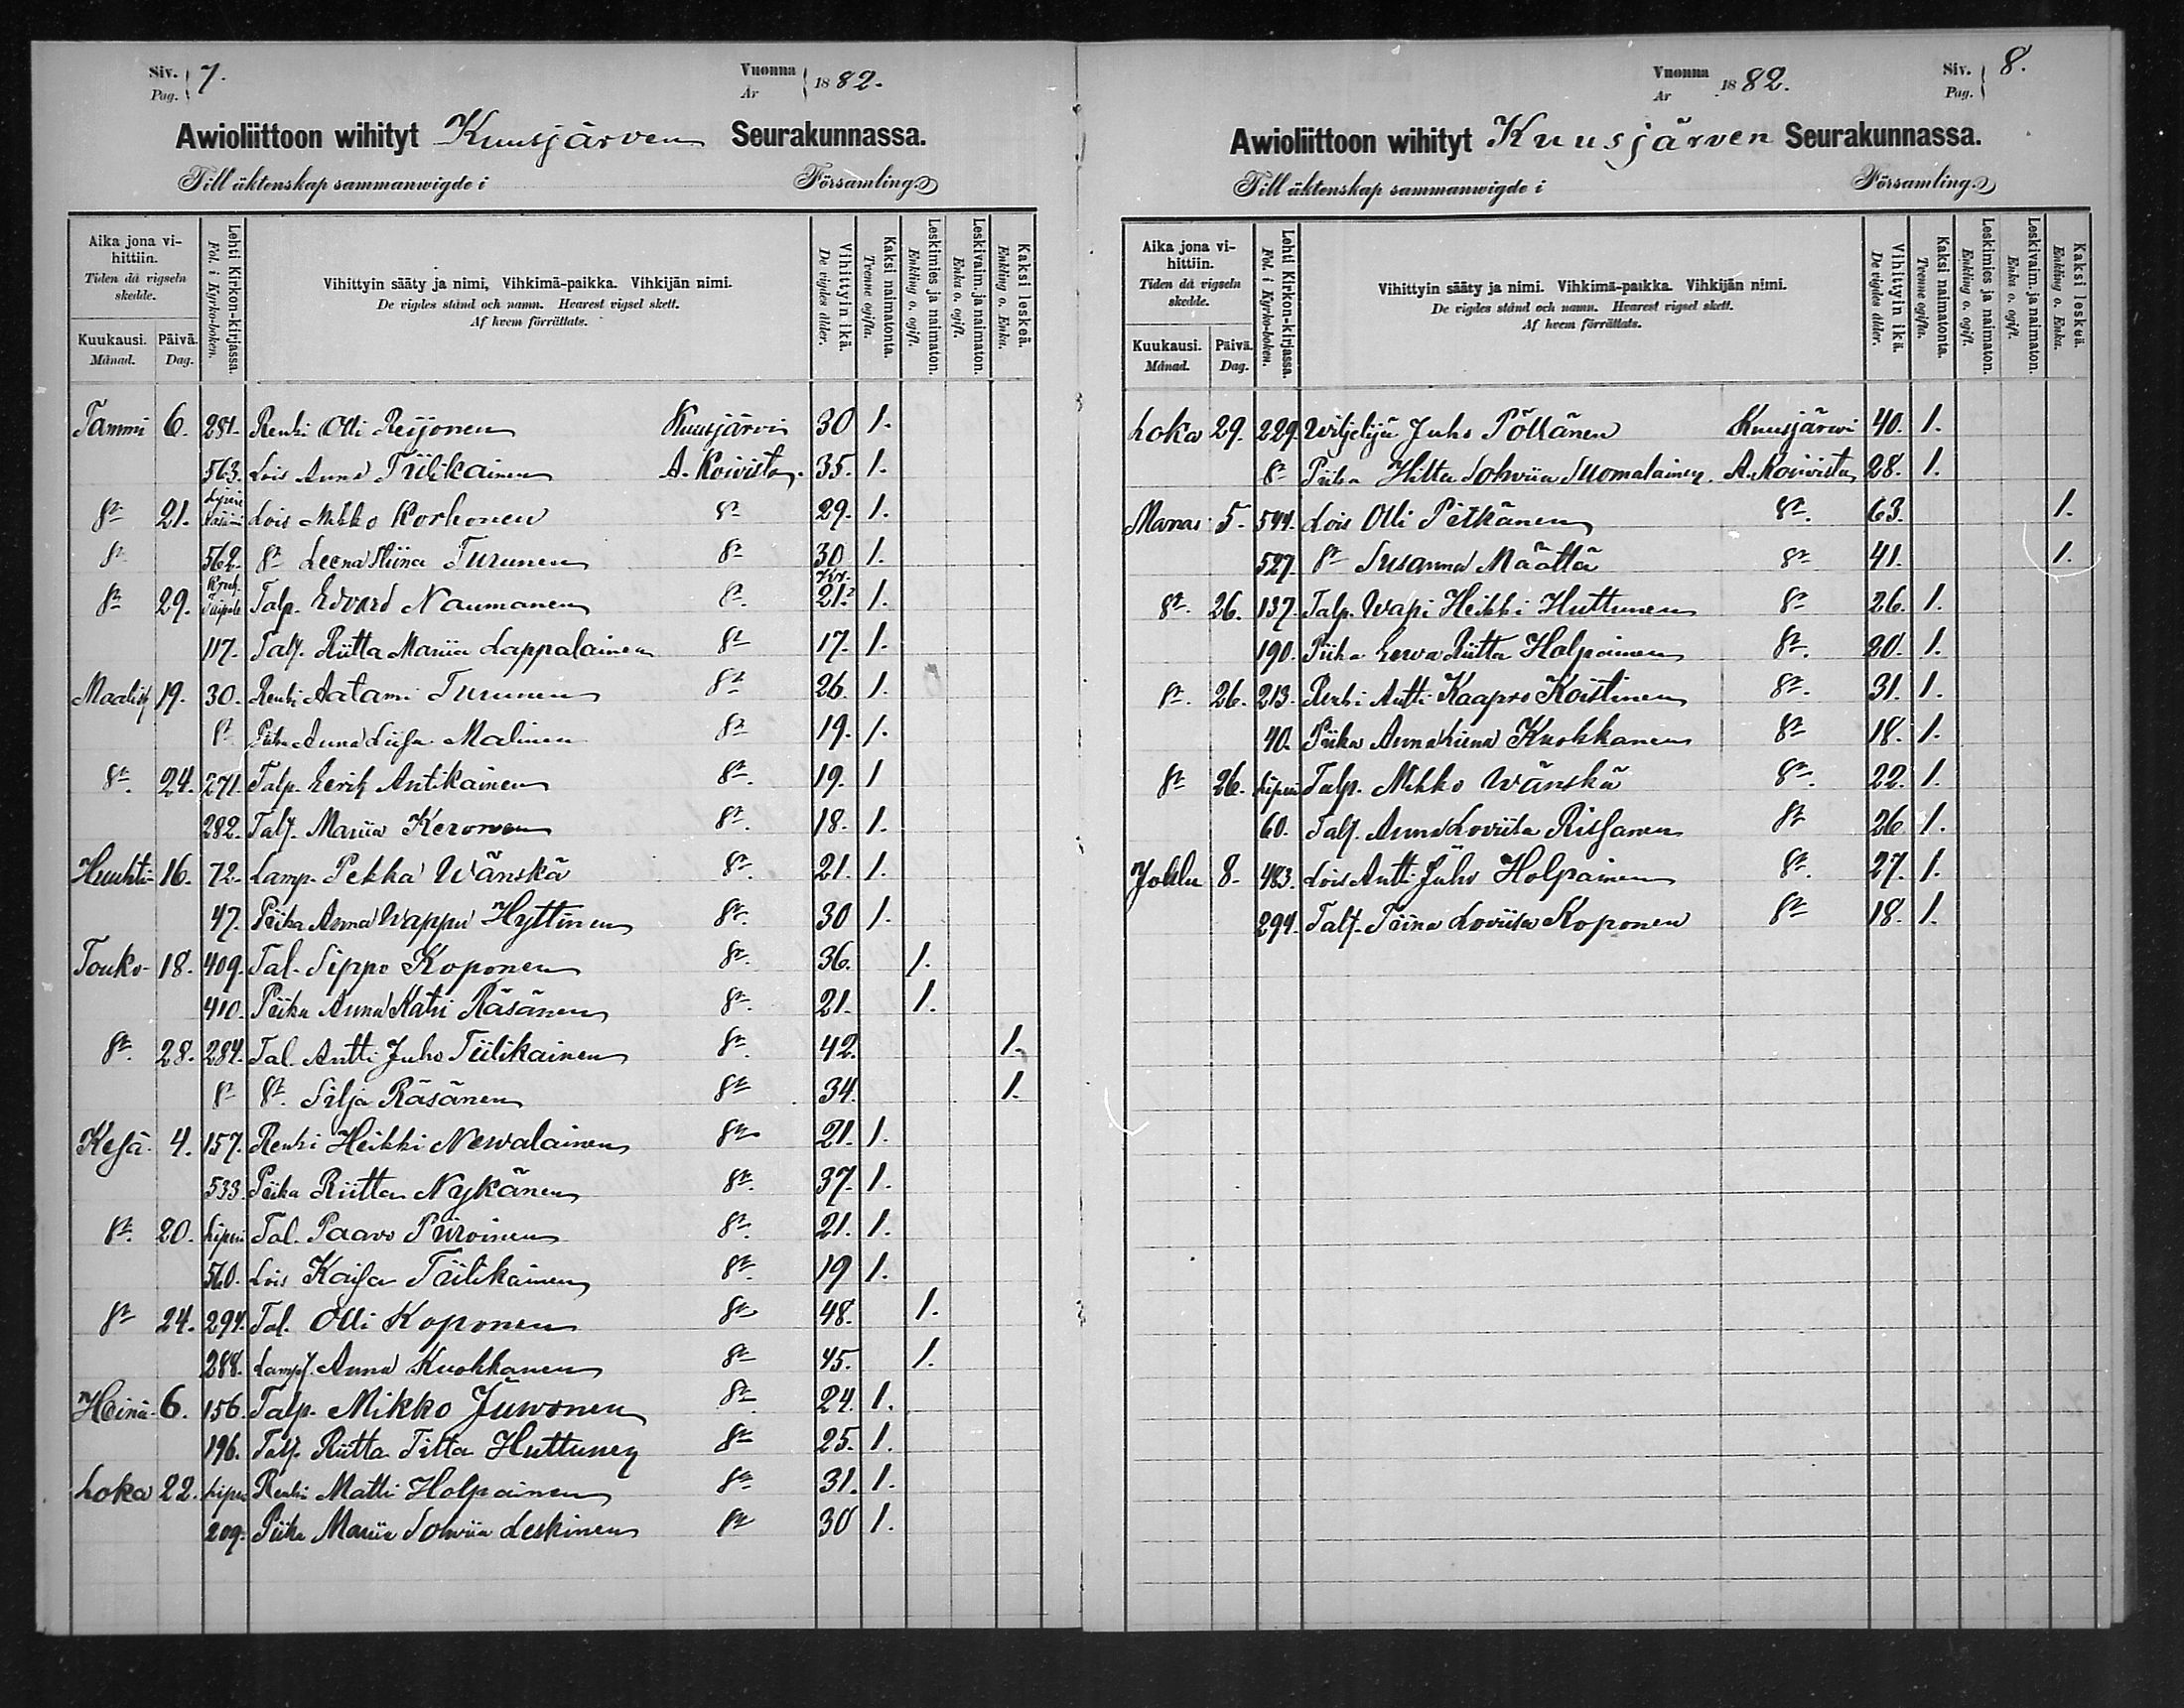 Siv. 7.
Pag.
Vuonna 1882.
År
Awioliittoon wihityt Kuusjärven Seurakunnassa.
Till äktenskap sammanwigde i Församling.
Aika jona vihittiin.
Tiden då vigseln skedde.
Kuukausi.
Månad.
Päivä.
Dag.
Lehti Kirkon-kirjassa.
Fol. i Kyrko-boken.
Vihittyin sääty ja nimi, Vihkimä-paikka. Vihkijän nimi.
De vigdes stånd och namn. Hvarest vigsel skett.
Af hvem förrättats.
Vihittyin ikä.
De vigdes ålder.
Kaksi naimatonta.
Tvenne ogifta.
Leskimies ja naimaton.
Enkling o. ogift.
Leskivaim. ja naimaton.
Enka o. ogift.
Kaksi leskeä.
Enkling o. Enka.
Tammi 6. 281. Renki Olli Reijonen Kuusjärvi 30 1.
563. Lois Anna Tiilikainen A. Koivisto. 35. 1.
Dº 21. Lois Mikko Korhonen Dº 29. 1.
Dº 562. Dº Leena Stiina Turunen Dº 30 1.
Dº 29. Talp. Edvard Naumanen Dº 21. 1.
117. Talt. Riitta Maria Lappalainen Dº 17. 1.
Maalisk 19. 30. Renki Aatami Turunen Dº 26 1.
Dº Piika Anna Liisa Malinen Dº 19. 1.
Dº 24. 271. Talp. Eerik Antikainen Dº 19. 1
282. Talt. Maria Keronen Dº 18. 1.
Huuhti- 16. 72. Lamp. Pekka Wänskä Dº 21. 1.
47. Piika Anna Wappu Hyttinen Dº 30 1.
Touko- 18. 409. Tal. Sippo Koponen Dº 36. 1.
410. Piika Anna Katri Räsänen Dº 21. 1.
Dº 28. 284. Tal. Antti Juho Tiilikainen Dº 42. 1.
Dº Dº Silja Räsänen Dº 34. 1.
Kesä- 4. 157. Renki Heikki Newalainen Dº 21. 1.
533. Piika Riitta Nykänen Dº 37. 1.
Dº 20. Liperi Tal. Paavo Piiroinen Dº 21. 1.
560. Lois Kaisa Tiilikainen Dº 19 1.
Dº 24. 294. Tal. Olli Koponen Dº 48. 1.
288. Lampt. Anna Kuokkanen Dº 45. 1.
Heinä- 6. 156. Talp. Mikko Juwonen Dº 24. 1.
196. Talt. Riitta Tilta Huttunen Dº 25. 1.
Loka 22. Liperi Renki Matti Holpainen Dº 31. 1.
209. Piika Maria Sohwia Leskinen Dº 30 1.
Vuonna 1882.
År
Siv. 8.
Pag.
Awioliittoon wihityt Kuusjärven Seurakunnassa.
Till äktenskap sammanwigde i Församling.
Aika jona vihittiin.
Tiden då vigseln skedde.
Kuukausi.
Månad.
Päivä.
Dag.
Lehti Kirkon-kirjassa.
Fol. i Kyrko-boken.
Vihittyin sääty ja nimi. Vihkimä-paikka. Vihkijän nimi.
De vigdes stånd och namn. Hvarest vigsel skett.
Af hvem förrättats.
Vihittyin ikä.
De vigdes ålder.
Kaksi naimatonta.
Tvenne ogifta.
Leskimies ja naimaton.
Enkling o. ogift.
Leskivaim. ja naimaton.
Enka o. ogift.
Kaksi leskeä.
Enkling o. Enka.
Loka 29. 229. Wiljelijä Juho Pöllänen Kuusjärwi 40. 1.
Dº Piika Hilta Sohwiia Suomalainen. A. Koivisto 28. 1.
Marras 5. 544. Lois Olli Pitkänen Dº 63. 1.
527. Dº Susanna Määttä Dº 41. 1.
Dº 26. 137. Talp. Wapi Heikki Huttunen Dº 26. 1.
190. Piika Eeva Riitta Holpainen Dº 20. 1.
Dº 26. 213. Renki Antti Kaapro Koistinen Dº 31. 1.
40. Piika Anna Liena Kuokkanen Dº 18. 1.
Dº 26. Liperi Talp. Mikko Wänskä Dº 22. 1.
60. Talt. Anna Loviisa Rissanen Dº 26 1.
Joklu 8. 483. Lois Antti Juho Holpainen Dº 27. 1.
294. Talt. Tiina Loviisa Koponen Dº 18. 1.